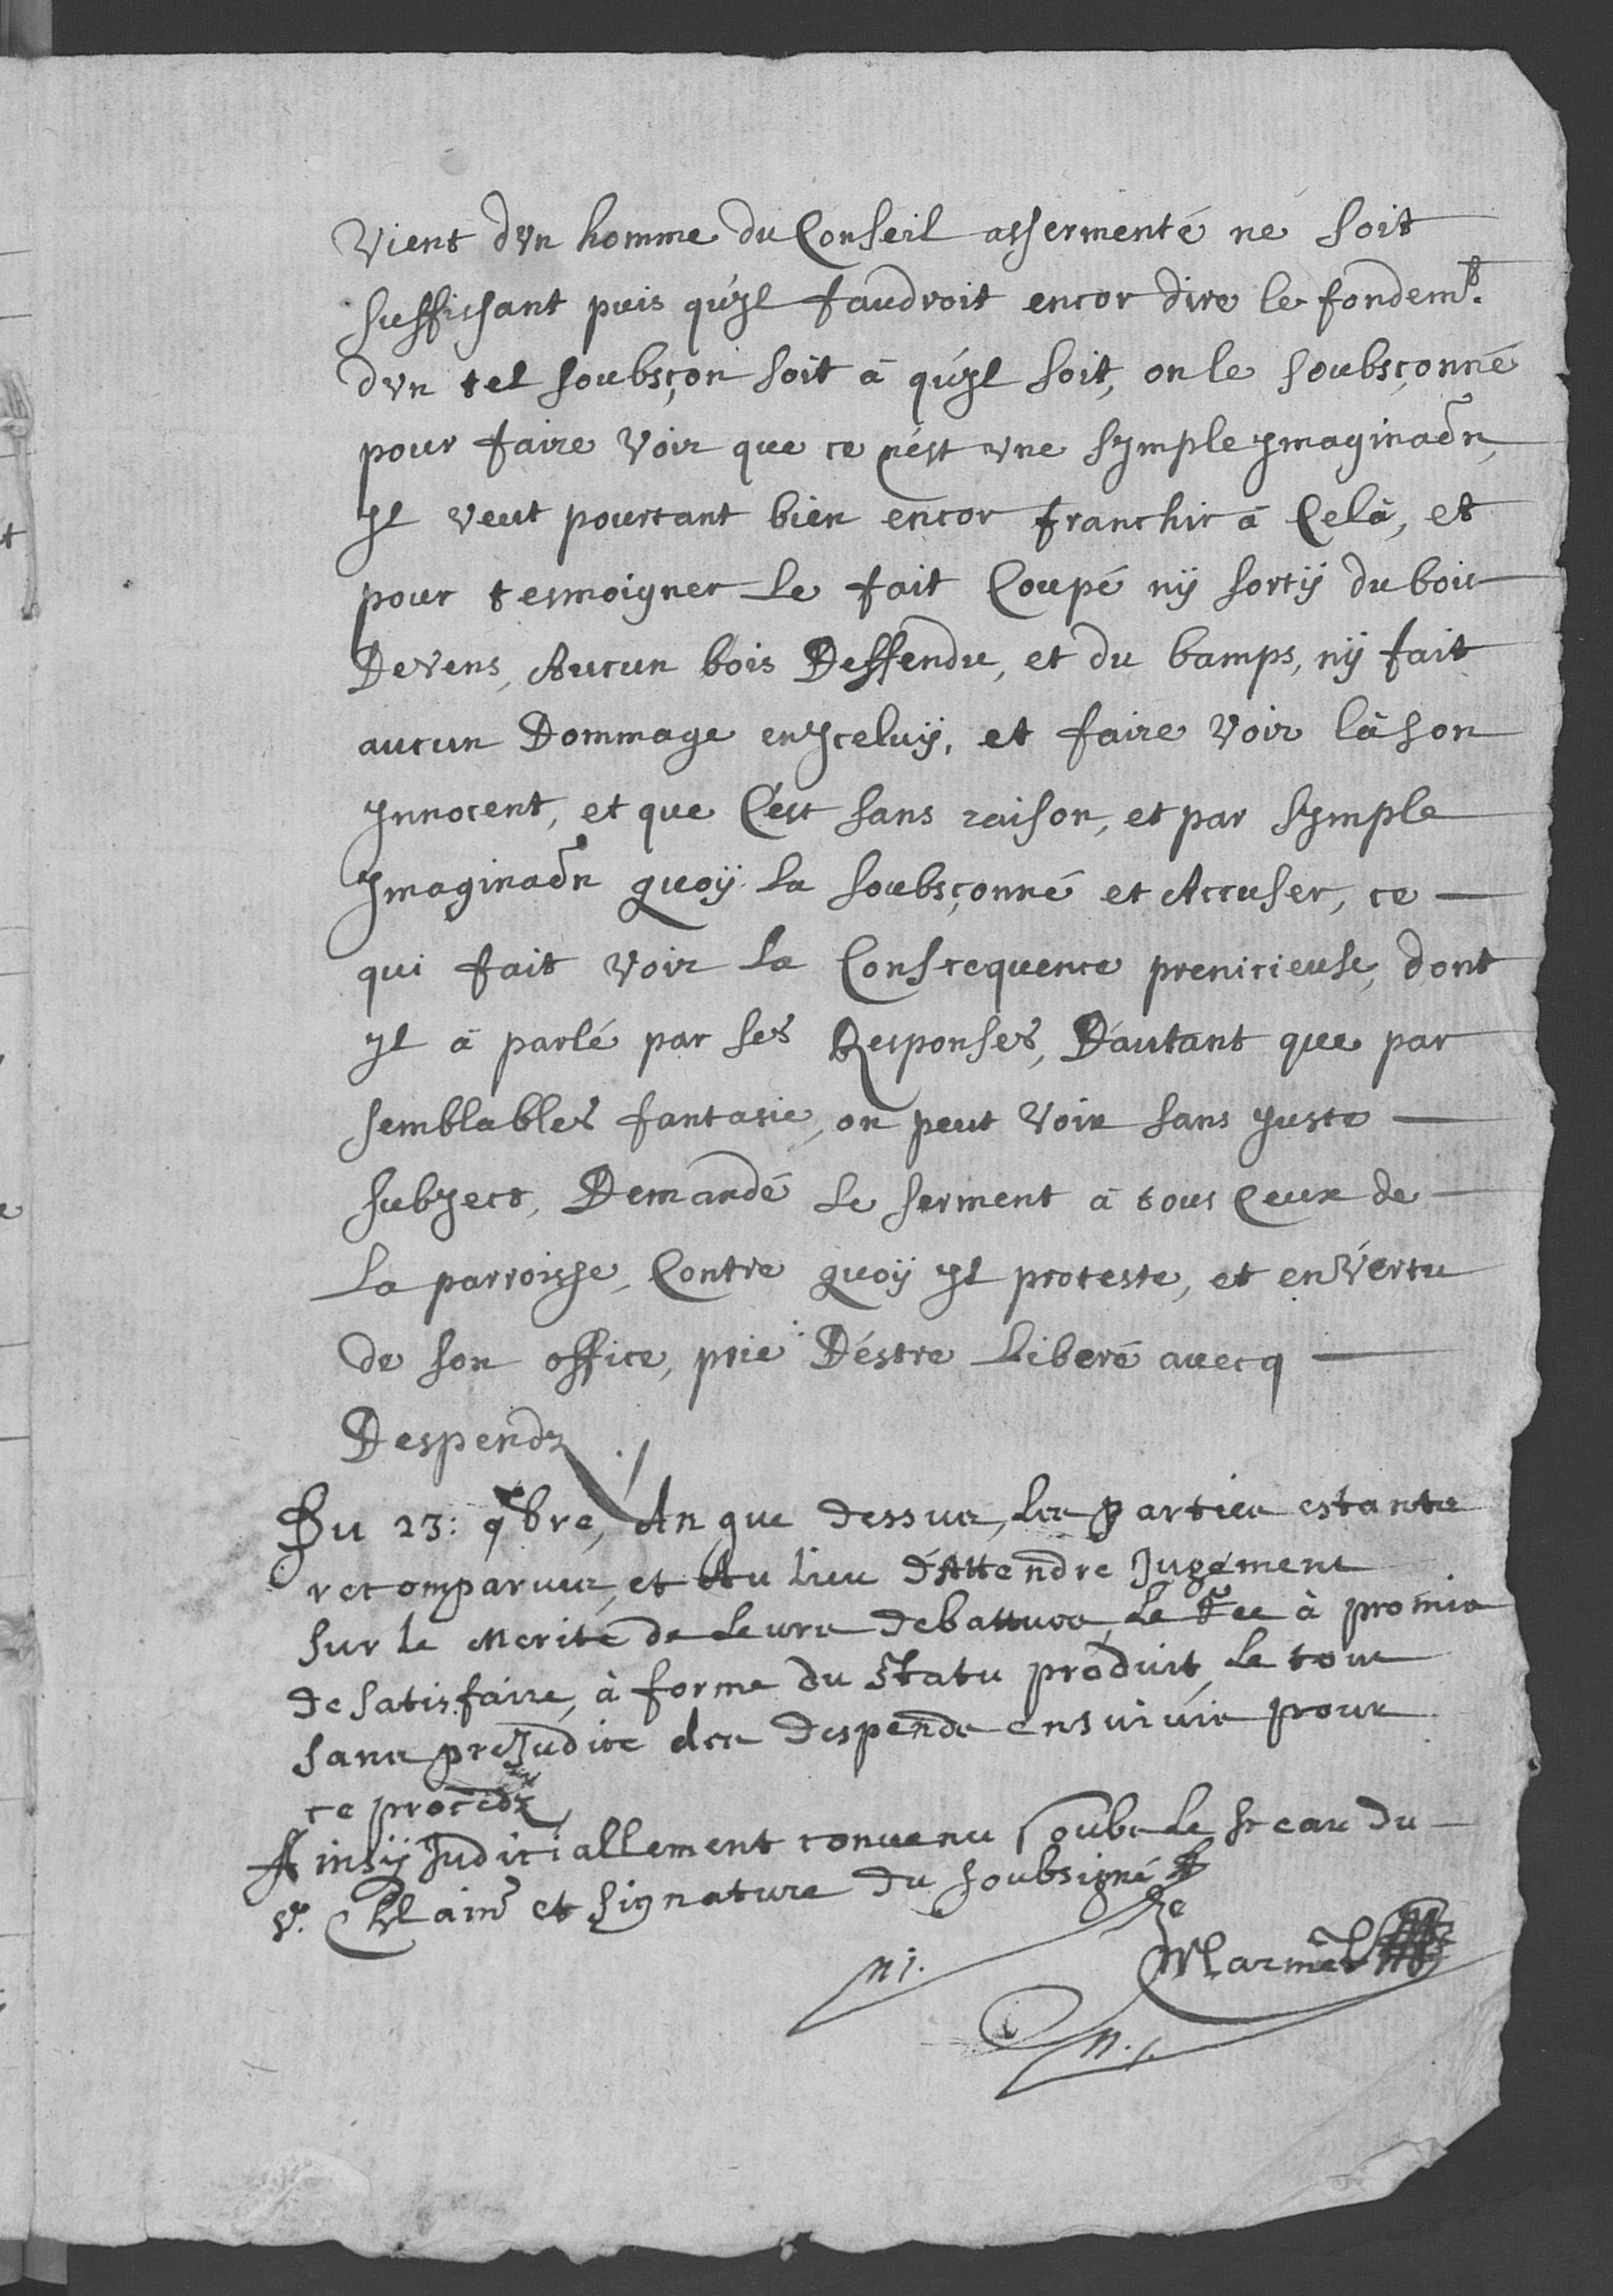 Vient dvn homme du Conseil assermenté ne soit
suffissant puis qu'yl faudroit encor dire le fondemt.
dvn tel soubsçon soit à qu'yl soit, on le soubsçonné
pour faire voir que ce n'est vne symple ymaginaõn,
yl veut pourtant bien encor franchir à Celà, et
pour tesmoigner le fait Coupé nÿ sortÿ du bois
Devens, Aucun bois Deffendu, et du bamps, nÿ fait
aucun Dommage en yceluÿ, et faire voir là son
ynnocent, et que C'est sans raison, et par symple
ymaginaõn quoÿ la soubsçonné et Accuser, ce
qui fait voir la Conscequence prenicieuse, dont
yl à parlé par ses Responses, D'autant que par
semblables fantasie, on peut voir sans yuste
subyect, Demandé le serment à tous Ceux de
la parroisse, Contre quoÿ yl proteste, et en vertu
de son office, prie D'éstre liberé avecq
Despends
Du 23: 9bre, An que dessus, les parties estantes
recomparues, et Au lieu d'Attendre Jugement
sur le Merite de leurs debattues, le à promis
de satisfaire, à forme du statu produit, le tout
sans preJudice des despends ensuivis pour
ce proced
Ainsÿ Judiciallement convenu soubs le sceau du
et signature du soubsigné